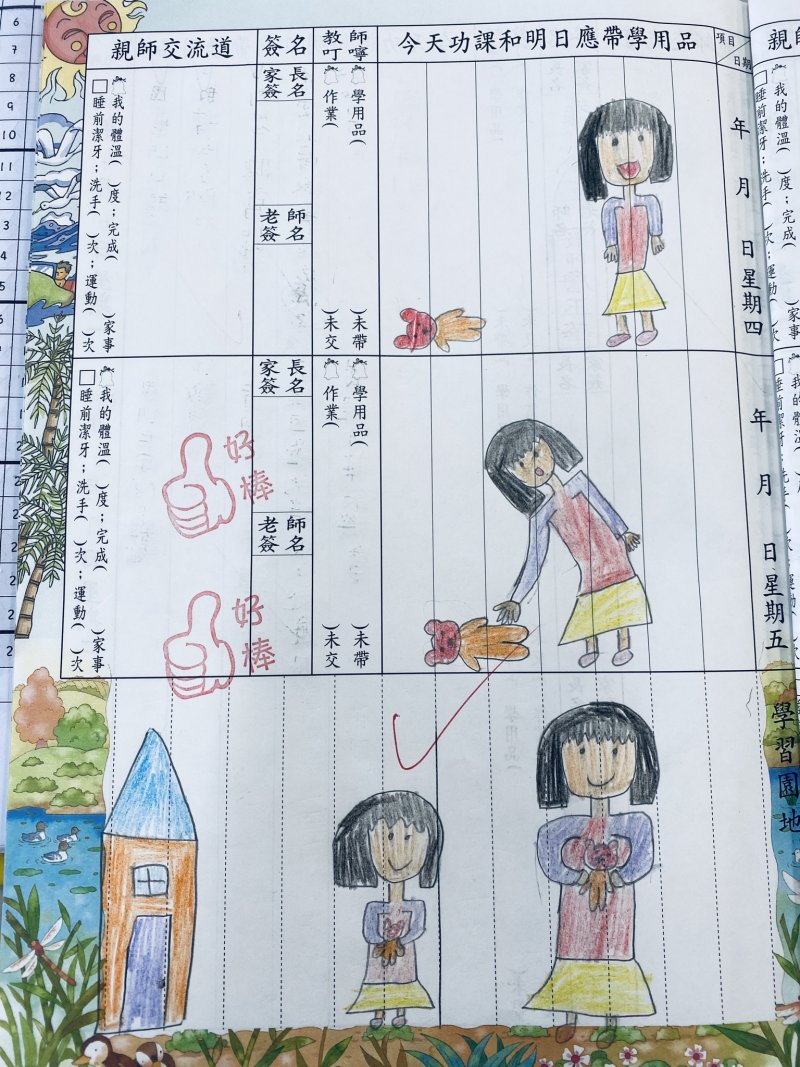 項目
日期
今天功課和明日應帶學用品
教師叮嚀
簽名
親師交流道
年 月 日星期四
學用品(
)未帶
作業(
)未交
家長簽名
老師簽名
我的體溫( )度;完成( )家事
□睡前潔牙;洗手( )次;運動( )次
年 月 日星期五
學用品(
)未帶
作業(
)未交
家長簽名
老師簽名
好棒
好棒
我的體溫( )度;完成( )家事
□睡前潔牙;洗手( )次;運動( )次
學習園地